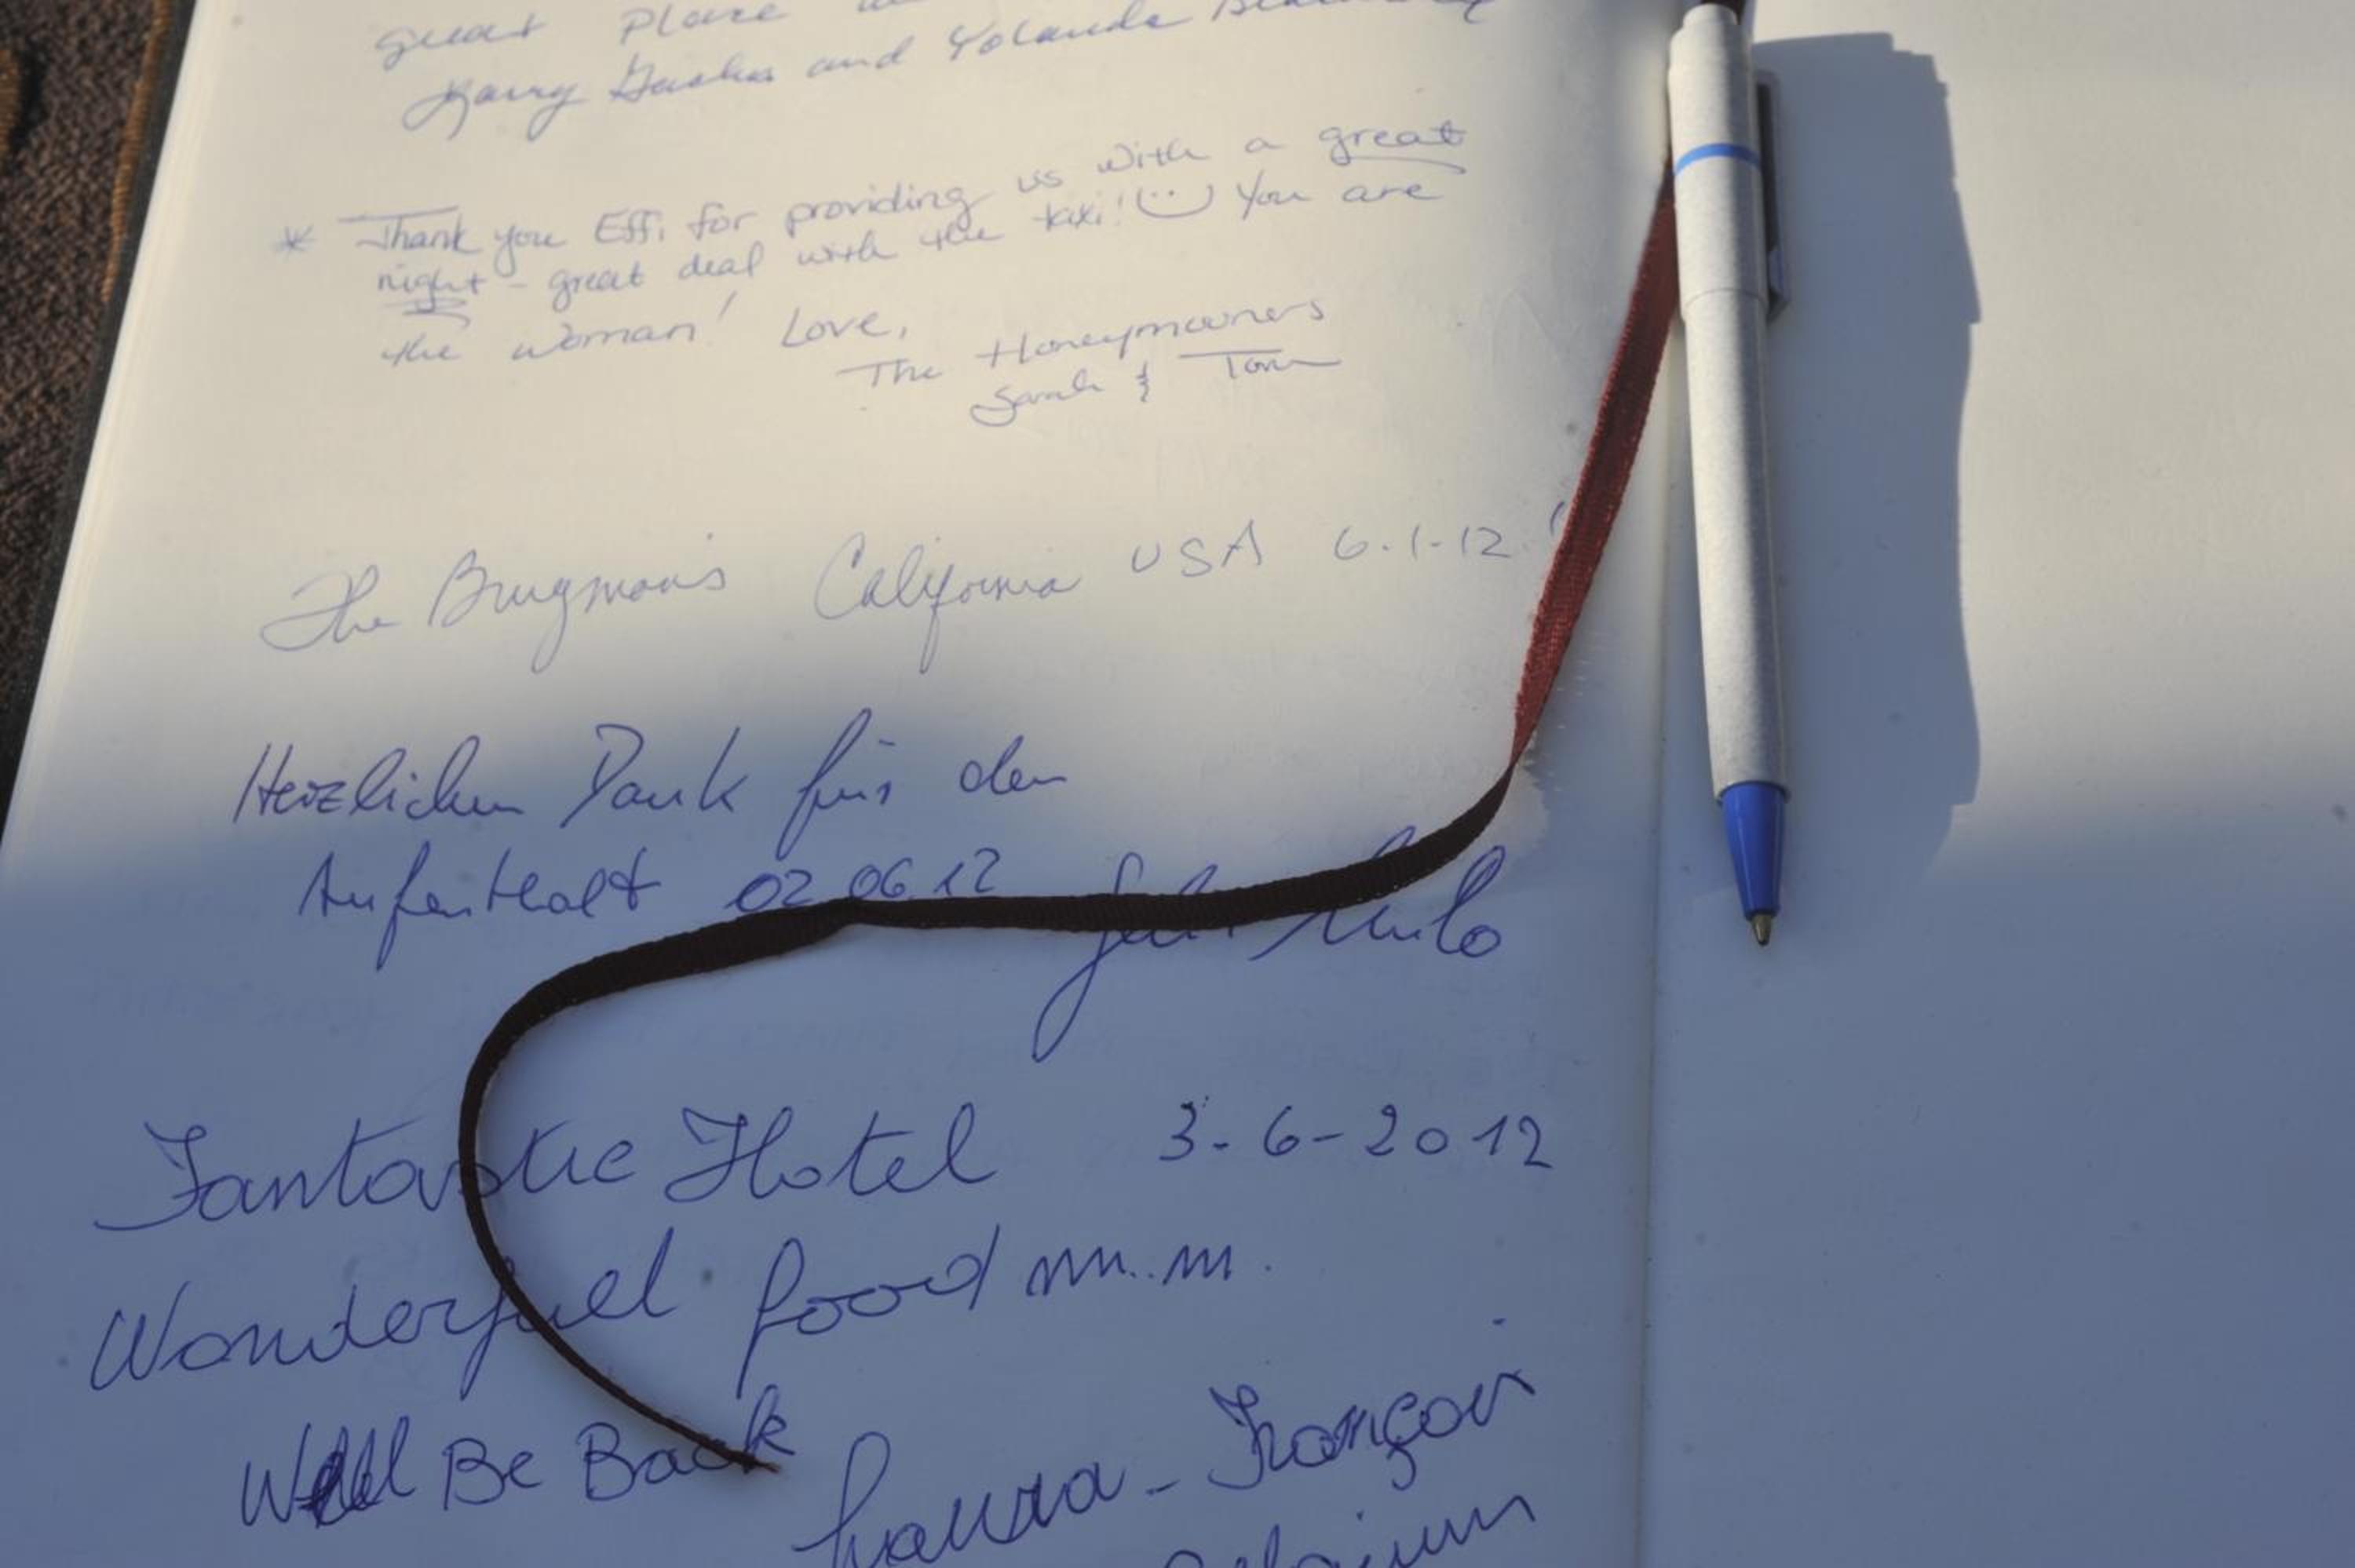 great place
and Yolande
* Thank you Effi for providing us with a great
night - great deal with the taxi! You are
the woman! Love,
The Honeymooners
Sarah & Tom
The Brugman's California USA 6.1.12
Herzlichen Dank für den
Aufenthalt 02.06.12
Fantastic Hotel 3-6-2012
Wonderfuel food mm..m.
Will Be Back
Laura - Françoix
Belgium